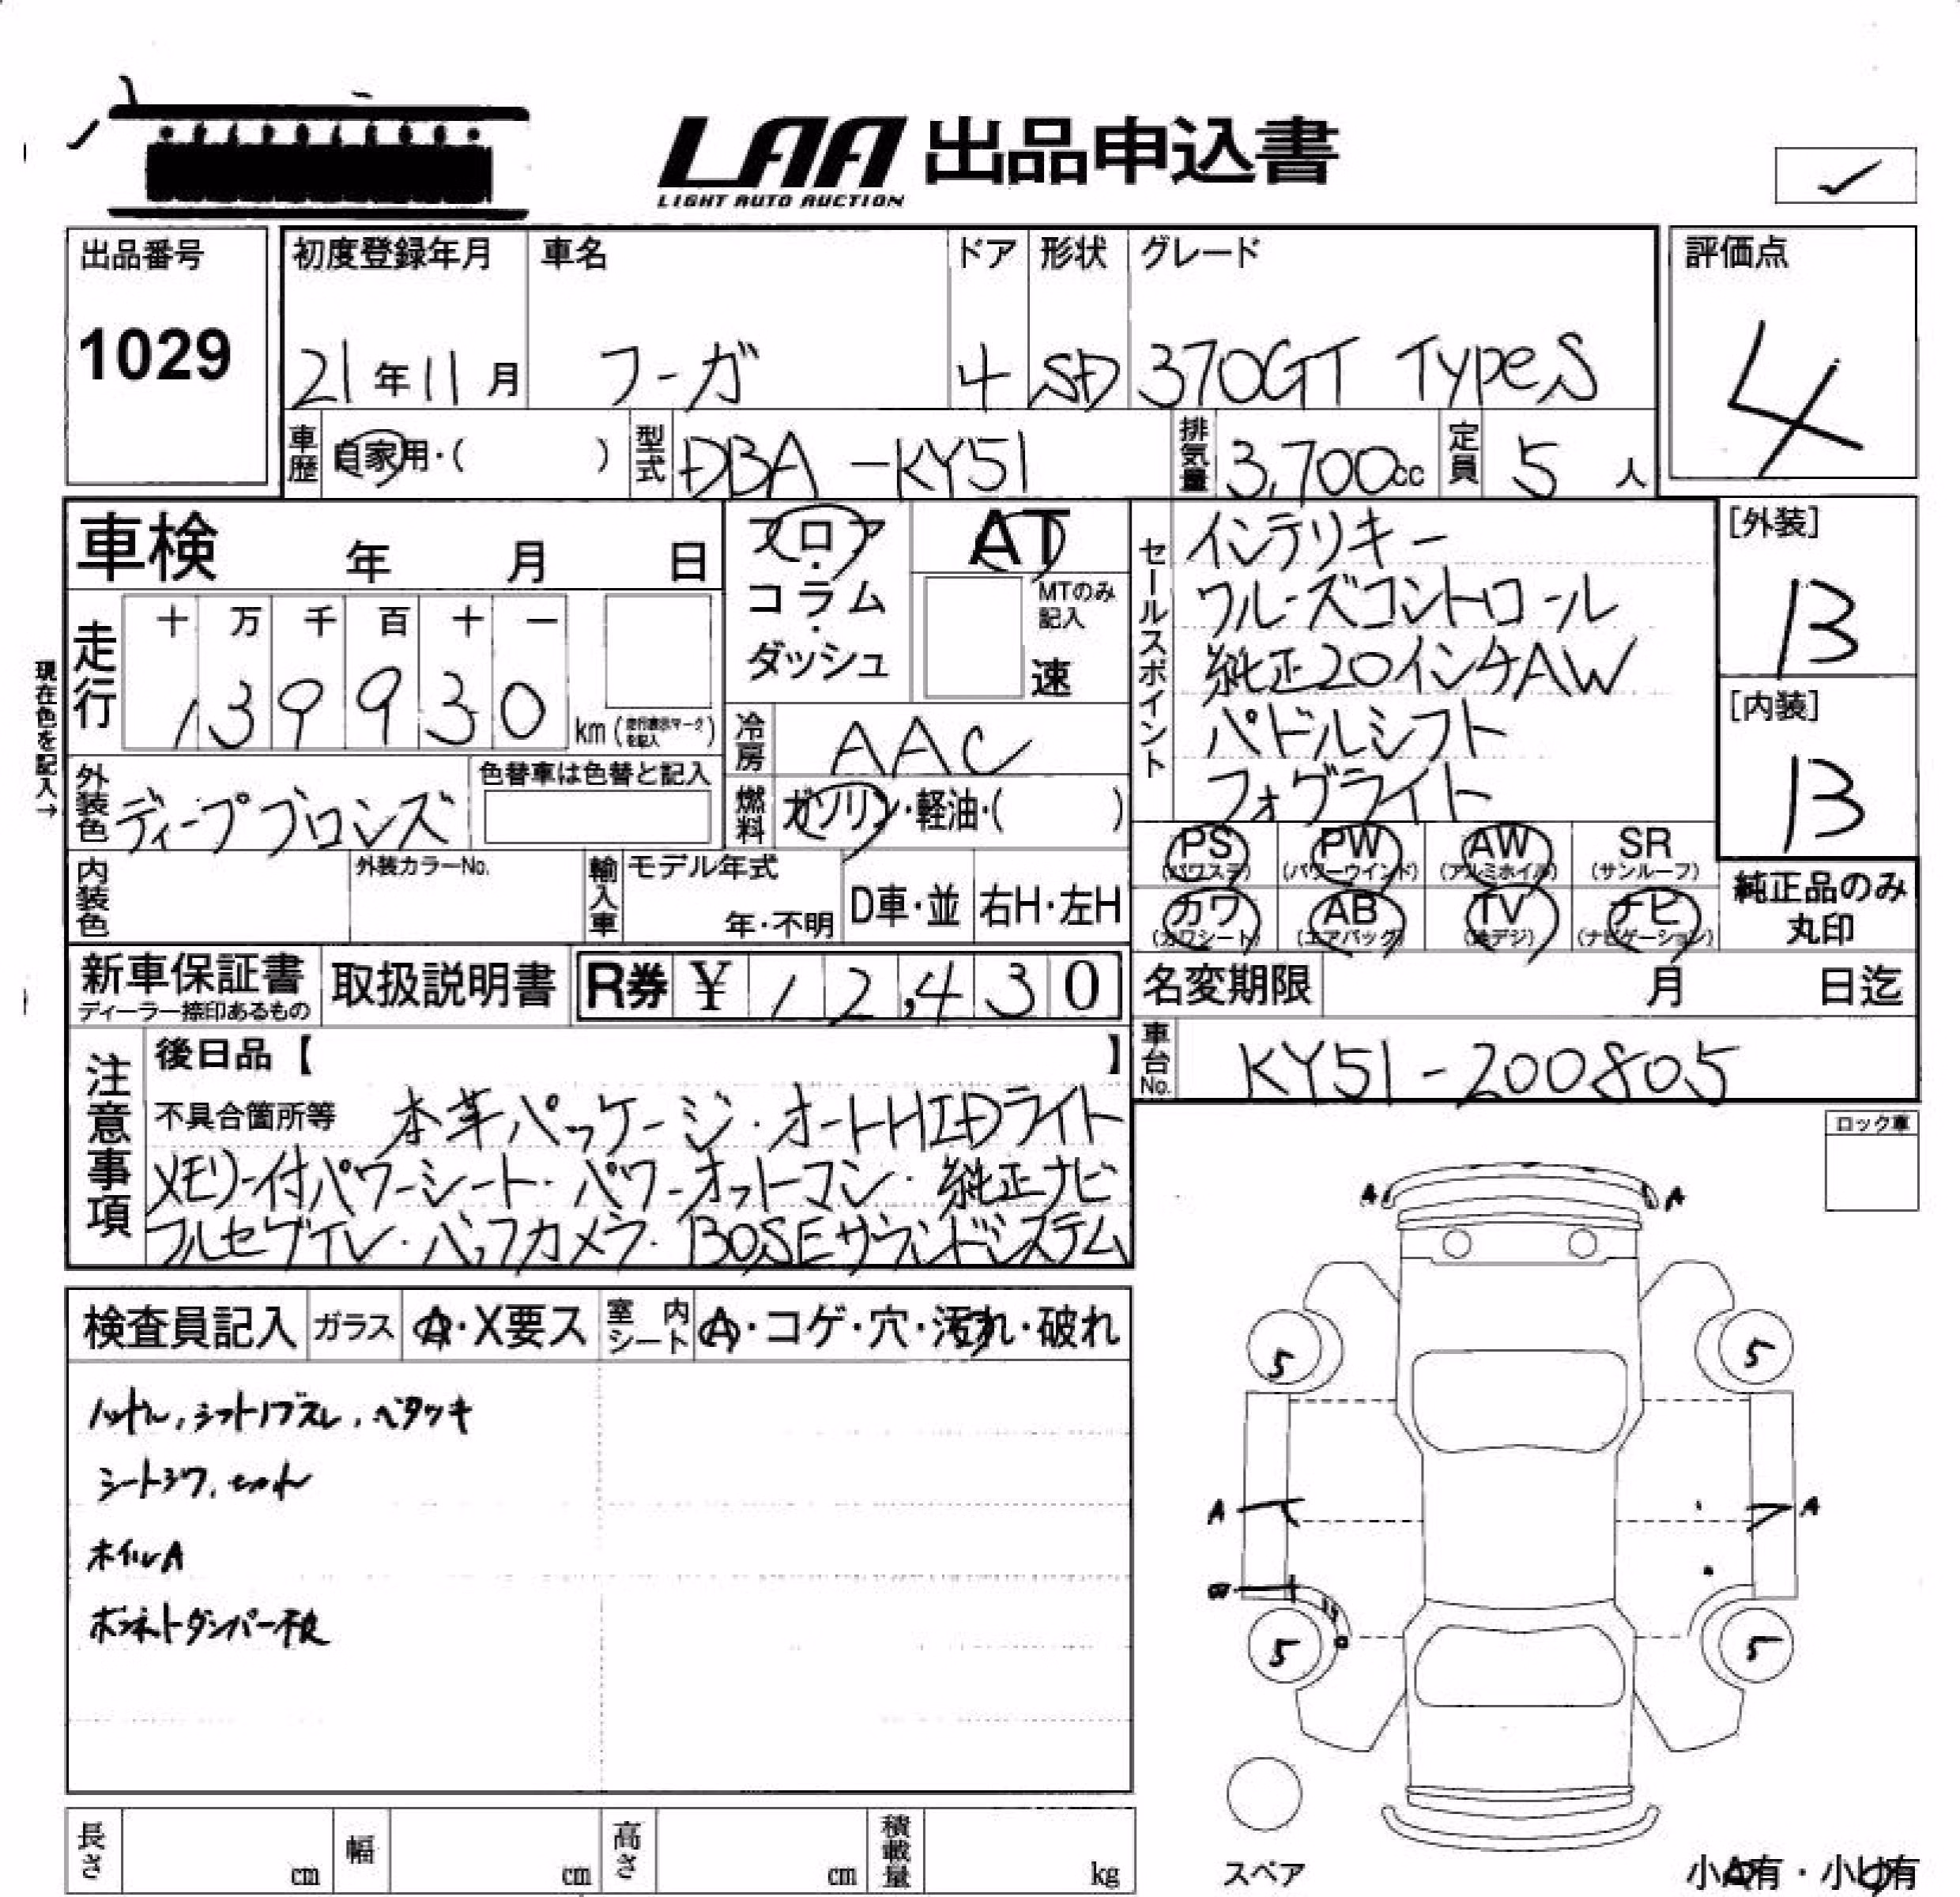 LAA 出品申込書
LIGHT AUTO AUCTION
出品番号
1029
初度登録年月
21年11月
車名
フーガ
ドア
4
形状
SD
グレード
370GT TypeS
評価点
4
車歴 自家用・( )
型式 DBA-KY51
排気量 3,700cc
定員 5人
車検 年 月 日
フロア・コラム・ダッシュ
AT
MTのみ記入
速
セールスポイント
インテリキー
クルーズコントロール
純正20インチAW
パドルシフト
フォグライト
[外装]
B
[内装]
B
現在色を記入→
走行
十 万 千 百 十 一
1 3 9 9 3 0
km (走行表示マークを記入)
冷房 AAC
外装色 ディープブロンズ
色替車は色替と記入
燃料 ガソリン・軽油・( )
PS (パワステ)
PW (パワーウインド)
AW (アルミホイル)
SR (サンルーフ)
カワ (カワシート)
AB (エアバッグ)
TV (地デジ)
ナビ (ナビゲーション)
純正品のみ
丸印
内装色
外装カラーNo.
輸入車
モデル年式
年・不明
D車・並
右H・左H
新車保証書
ディーラー捺印あるもの
取扱説明書
R券 ¥12,430
名変期限 月 日迄
車台No. KY51-200805
注意事項
後日品【 】
不具合箇所等 本革パッケージ・オートHIDライト
メモリー付パワーシート・パワーオットマン・純正ナビ
フルセグTV・バックカメラ・BOSEサウンドシステム
ロック車
検査員記入
ガラス A・X要ス
室内シート A・コゲ・穴・汚れ・破れ
シフトノブスレ、ベタツキ
シートシワ、
ホイルA
ボンネットダンパー不良
A A
5 5
A A
5 5
スペア
小A有・小U有
長さ cm
幅 cm
高さ cm
積載量 kg